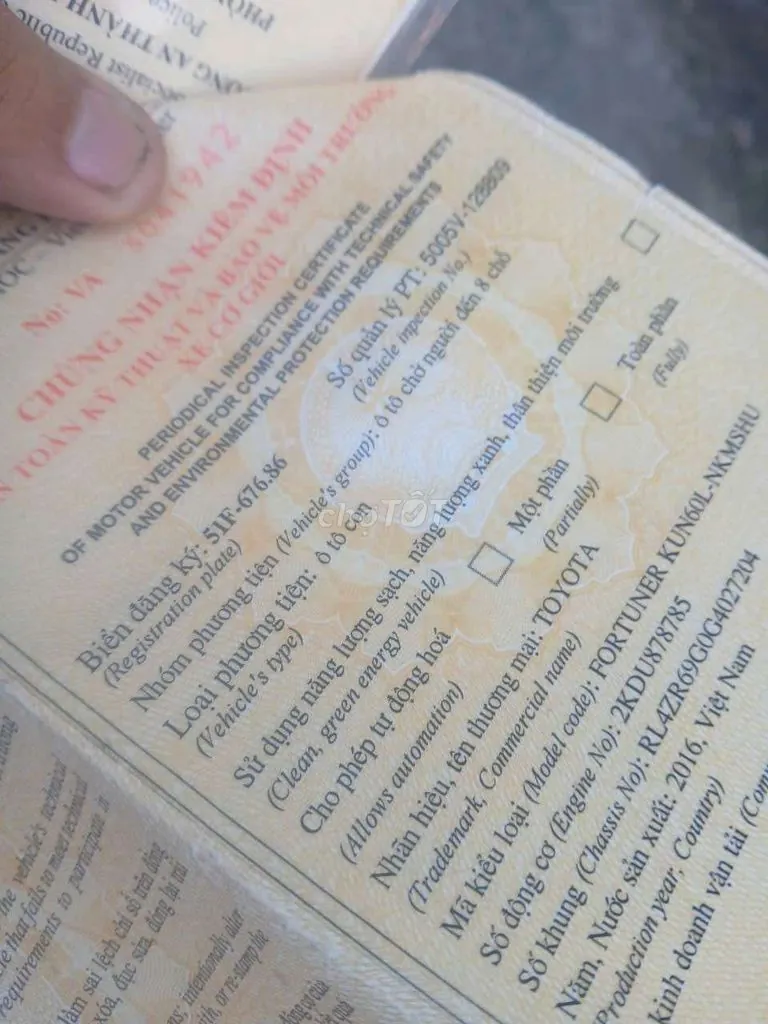 PHÒN
Police
CÔNG AN THÀNH
Socialist Republic
No: VA 5041942
CHỨNG NHẬN KIỂM ĐỊNH
AN TOÀN KỸ THUẬT VÀ BẢO VỆ MÔI TRƯỜNG
XE CƠ GIỚI
PERIODICAL INSPECTION CERTIFICATE
OF MOTOR VEHICLE FOR COMPLIANCE WITH TECHNICAL SAFETY
AND ENVIRONMENTAL PROTECTION REQUIREMENTS
Biển đăng ký: 51F-676.86 Số quản lý PT: 5005V-128809
(Registration plate) (Vehicle inpection No.)
Nhóm phương tiện (Vehicle's group): ô tô chở người đến 8 chỗ
Loại phương tiện: ô tô con
(Vehicle's type)
Sử dụng năng lượng sạch, năng lượng xanh, thân thiện môi trường
(Clean, green energy vehicle)
Cho phép tự động hoá Một phần Toàn phần
(Allows automation) (Partially) (Fully)
Nhãn hiệu, tên thương mại: TOYOTA
(Trademark, Commercial name)
Mã kiểu loại (Model code): FORTUNER KUN60L-NKMSHU
Số động cơ (Engine No): 2KDU878785
Số khung (Chassis No): RL4ZR69G0G4027204
Năm, Nước sản xuất: 2016, Việt Nam
(Production year, Country)
kinh doanh vận tải (Com
chợTỐT
the vehicle's technical
that fails to meet technical
requirements to participate in
làm sai lệch chỉ số trên đồng
xóa, đục sửa, đóng lại số
intentionally alter
or re-stamp the